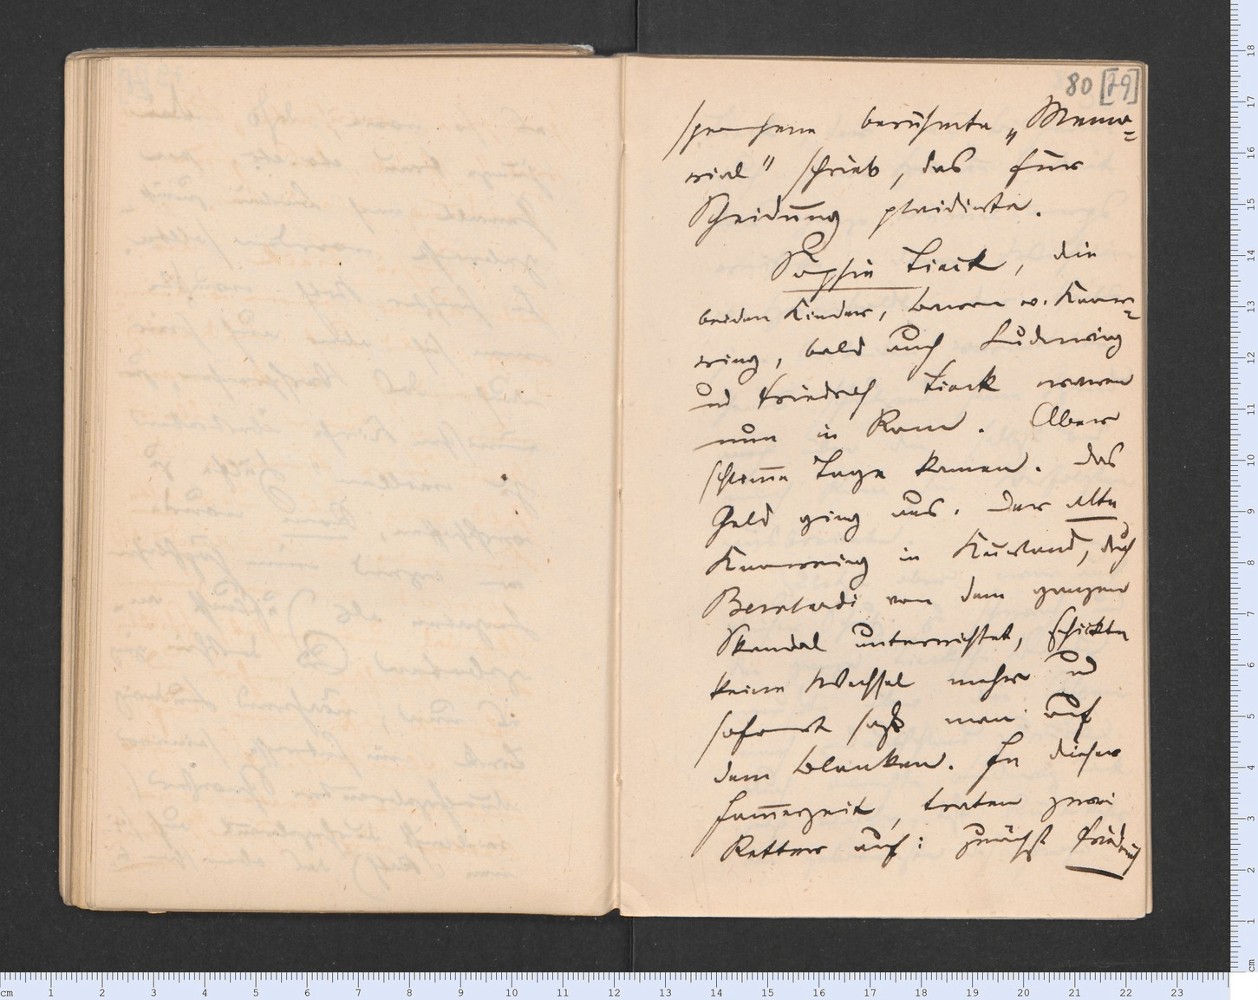 80 [79]
sprochene berühmte „Memo=
rial" schrieb, das für
Scheidung plaidirte.
Sophie Tieck, die
beiden Kinder, Baron v. Knor=
ring, bald auch Ludwig
und Friedrich Tieck waren
nun in Rom. Aber
schlim̄e Tage kamen. Das
Geld ging aus. Der alte
Knorring in Kurland, durch
Bernhardi von dem ganzen
Skandal unterrichtet, schickte
keine Wechsel mehr und
sofort saß man auf
dem Blanken. In dieser
Jam̄erzeit, traten zwei
Retter auf: zunächst Friedrich